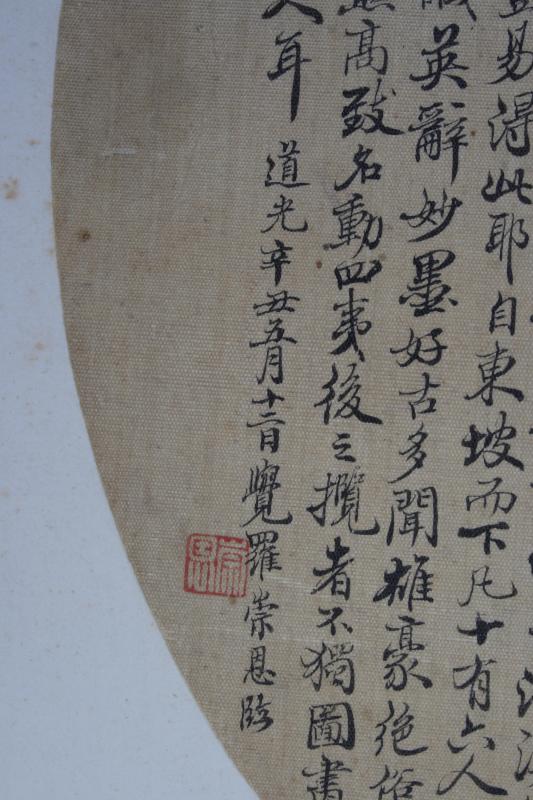 易得此耶自東坡而下凡十有六人
英辭妙墨好古多聞雄豪絕俗
高致名動四夷後之攬者不獨圖書
人年
道光辛丑五月十二日覺羅崇恩臨
崇恩